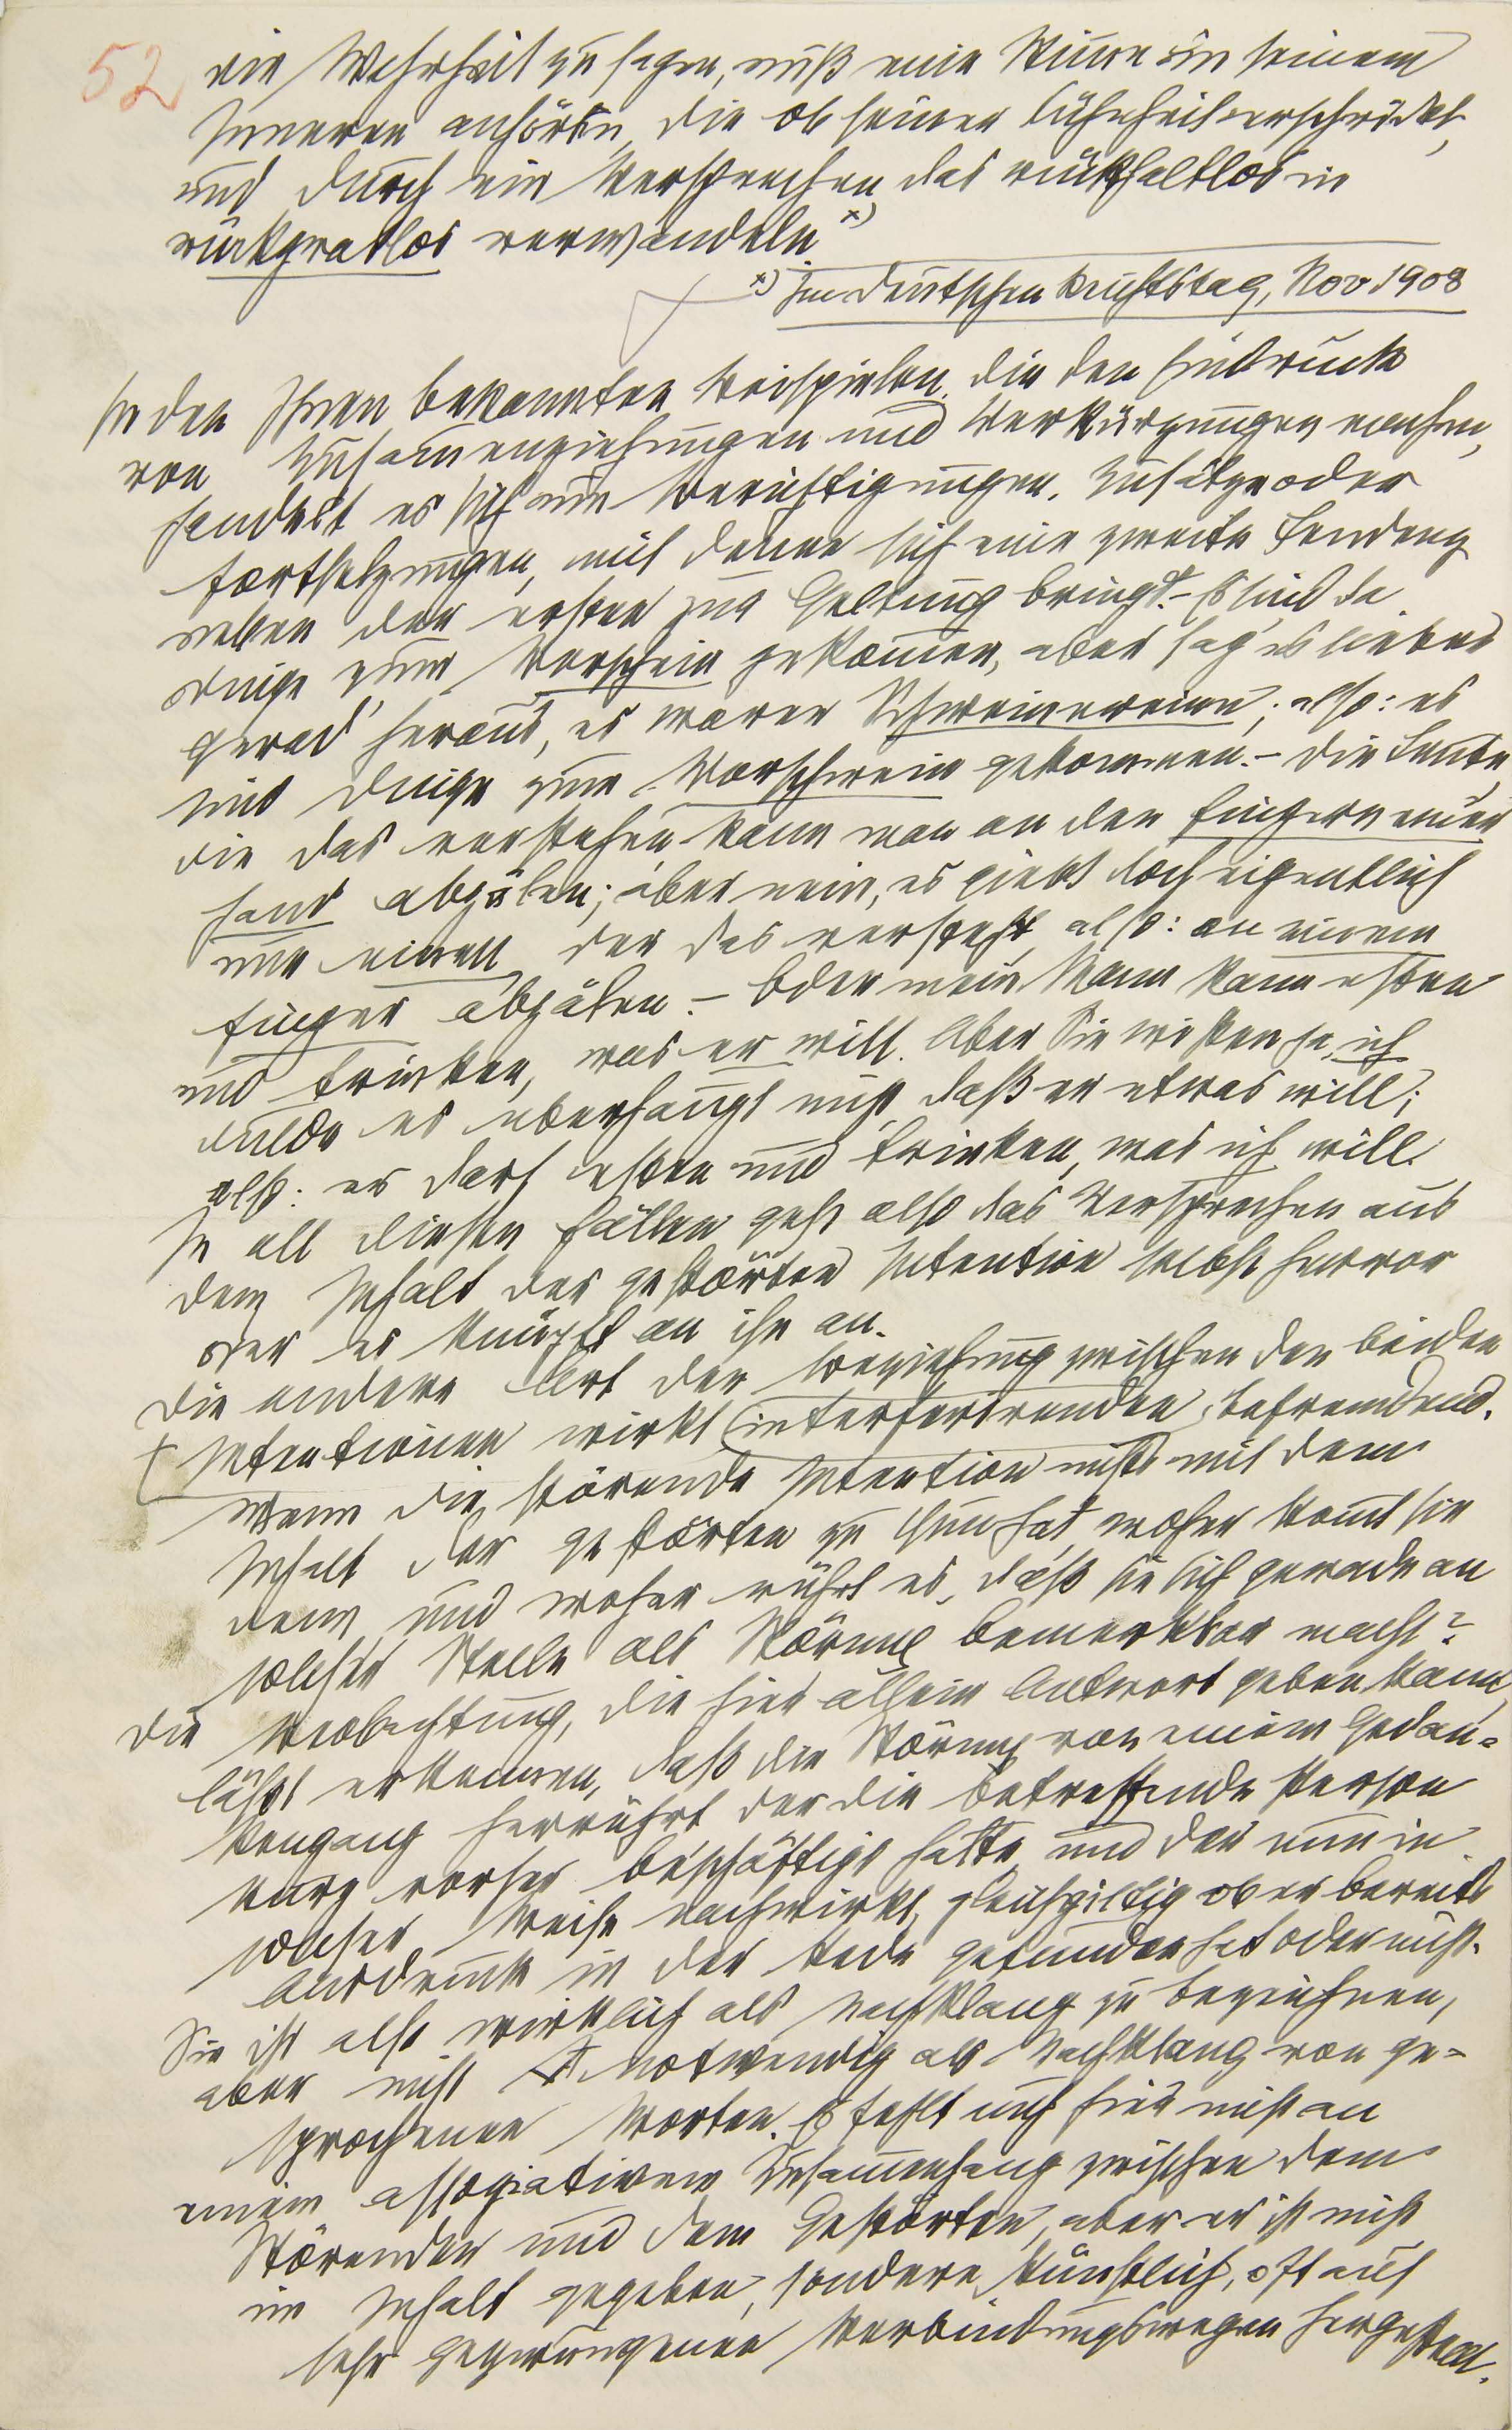 52
die Wahrheit zu sagen, muß eine Stimme in seinem
Inneren anhören, die ob seiner Kühnheit erschrickt,
und durch ein Versprechen das rückhaltlos in
rückgratlos verwandeln.x)
x) Im deutschen Reichstag, Nov 1908
In den Ihnen bekannten Beispielen, die den Eindruck
von Zusammenziehungen und Verkürzungen machen,
handelt es sich um Berichtigungen, Zusätze oder
Fortsetzungen, mit denen sich eine zweite Tendenz
neben der ersten zur Geltung bringt. – Es sind da
Dinge zum Vorschein gekommen, aber sag' es lieber
gerad' heraus, es waren Schweinereien; also: es
sind Dinge zum Vorschwein gekommen. – Die Leute,
die das verstehen kann man an den Fingern einer
Hand abzälen; aber nein, es giebt doch eigentlich
nur einen, der das versteht, also: an einem
Finger abzälen. – Oder mein Mann kann essen
und trinken, was er will. Aber Sie wissen ja, ich
dulde es überhaupt nicht, daß er etwas will;
also: er darf essen und trinken, was ich will.
In all diesen Fällen geht also das Versprechen aus
dem Inhalt der gestörten Intention selbst hervor
oder es knüpft an ihn an.
Die andere Art der Beziehung zwischen den beiden
Intentionen wirkt interferirenden befremdend.
Wenn die störende Intention nichts mit dem
Inhalt der gestörten zu thun hat, woher kommt sie
denn und woher rührt es, daß sie sich gerade an
solcher Stelle als Störung bemerkbar macht?
Die Beobachtung, die hier allein Antwort geben kann,
läßt erkennen, daß die Störung von einem Gedan=
kengang herrührt, der die betreffende Person
kurz vorher beschäftigt hatte, und der nun in
solcher Weise nachwirkt, gleichgiltig ob er bereits
Ausdruck in der Rede gefunden hat oder nicht.
Sie ist also wirklich als Nachklang zu bezeichnen,
aber nicht notwendig als Nachklang von ge=
sprochenen Worten. Es fehlt auch hier nicht an
einem assoziativen Zusammenhang zwischen dem
Störenden und dem Gestörten, aber er ist nicht
im Inhalt gegeben, sondern künstlich, oft auf
sehr gezwungenen Verbindungswegen hergestellt.